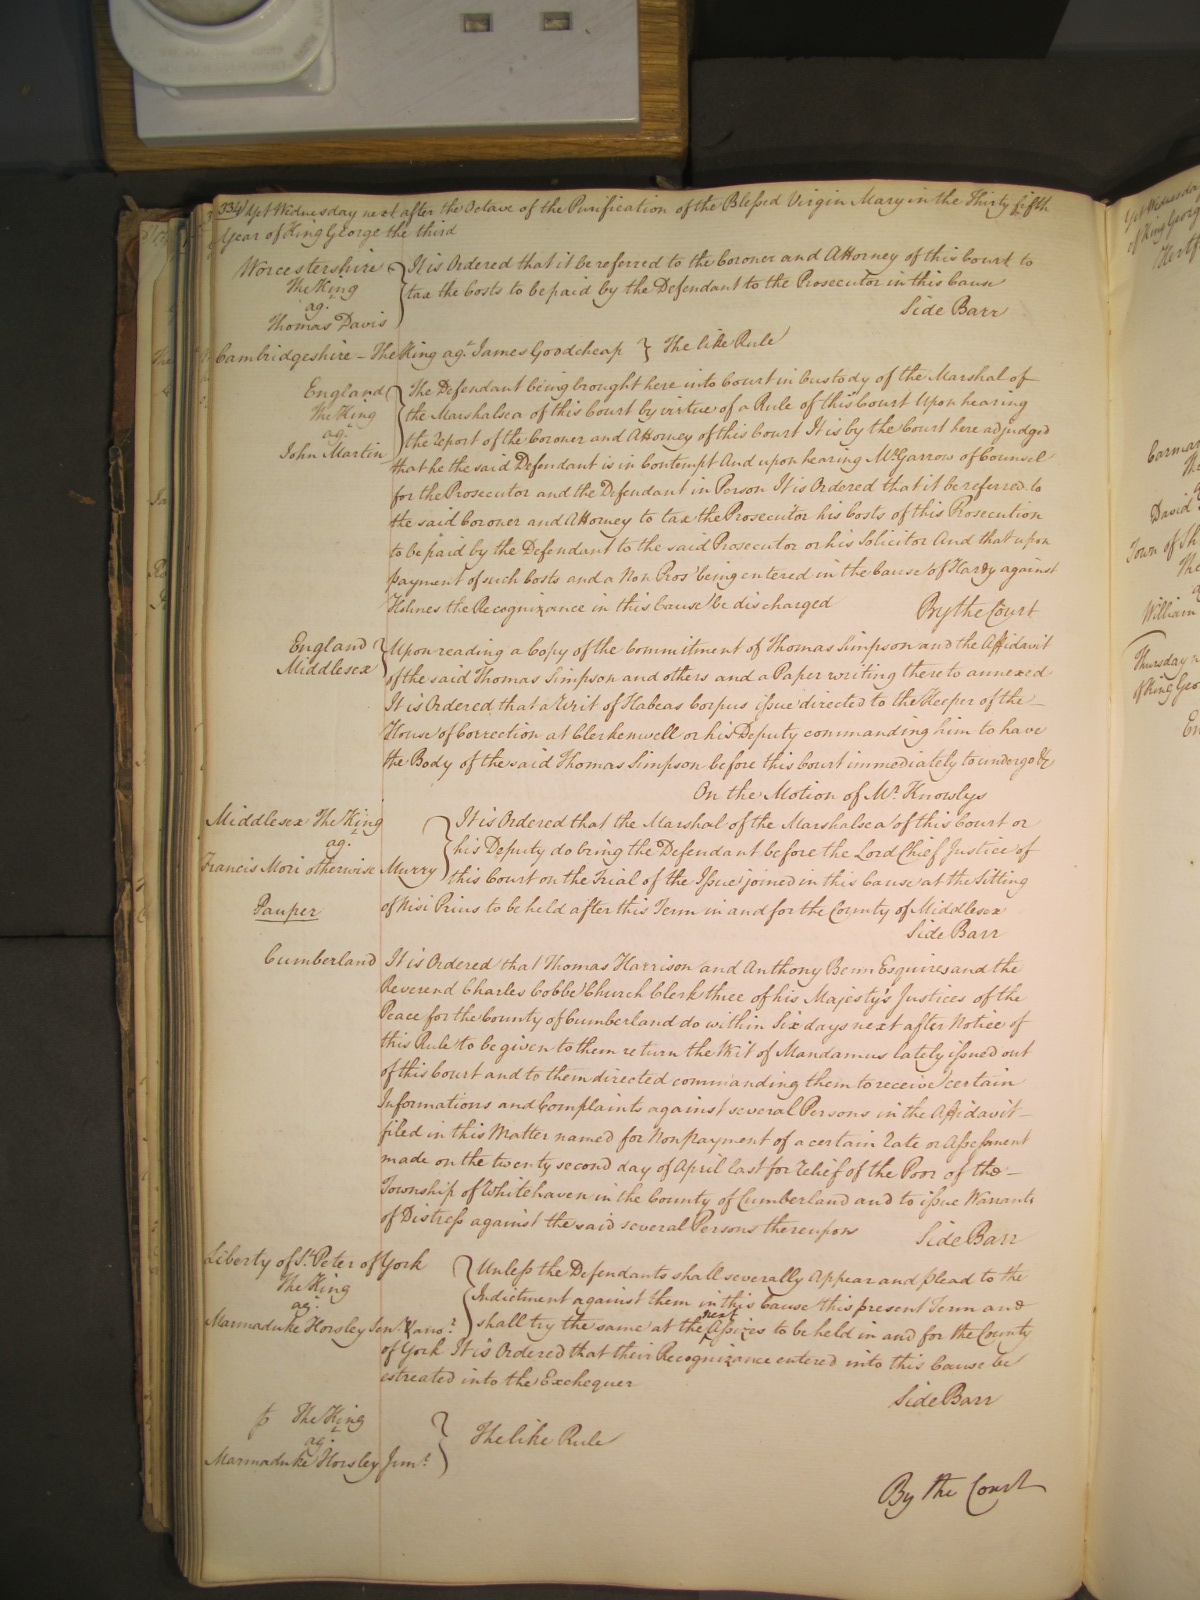 334 Yet Wednesday next after the Octave of the Purification of the Blessed Virgin Mary in the Thirty fifth
Year of King George the third
Worcestershire
The King
agt.
Thomas Davis
It is Ordered that it be referred to the Coroner and Attorney of this Court to
tax the Costs to be paid by the Defendant to the Prosecutor in this Cause
Side Barr
Cambridgeshire – The King agt. James Goodcheap } The like Rule
England
The King
agt.
John Martin
The Defendant being brought here into Court in Custody of the Marshal of
the Marshalsea of this Court by virtue of a Rule of this Court Upon hearing
the report of the Coroner and Attorney of this Court It is by the Court here adjudged
that he the said Defendant is in Contempt And upon hearing Mr. Garrow of Counsel
for the Prosecutor and the Defendant in Person It is Ordered that it be referred to
the said Coroner and Attorney to tax the Prosecutor his Costs of this Prosecution
to be paid by the Defendant to the said Prosecutor or his Solicitor And that upon
payment of such Costs and a Non Pros being entered in the Cause of Hardy against
Holmes the Recognizance in this Cause be discharged
By the Court
England
Middlesex
Upon reading a Copy of the Commitment of Thomas Simpson and the Affidavit
of the said Thomas Simpson and others and a Paper writing thereto annexed
It is Ordered that a Writ of Habeas Corpus issue directed to the Keeper of the –
House of Correction at Clerkenwell or his Deputy commanding him to have
the Body of the said Thomas Simpson before this Court immediately to undergo &c
On the Motion of Mr. Knowlys
Middlesex The King
agt.
Francis Mori otherwise Murry
Pauper
It is Ordered that the Marshal of the Marshalsea of this Court or
his Deputy do bring the Defendant before the Lord Chief Justice of
this Court on the Trial of the Issue joined in this Cause at the Sitting
of Nisi Prius to be held after this Term in and for the County of Middlesex
Side Barr
Cumberland
It is Ordered that Thomas Harrison and Anthony Benn Esquires and the
Reverend Charles Cobbe Church Clerk three of his Majesty's Justices of the
Peace for the County of Cumberland do within Six days next after Notice of
this Rule to be given to them return the Writ of Mandamus lately issued out
of this Court and to them directed commanding them to receive certain
Informations and Complaints against several Persons in the Affidavit –
filed in this Matter named for Non payment of a certain rate or Assessment
made on the twenty second day of April last for relief of the Poor of the –
Township of Whitehaven in the County of Cumberland and to issue Warrants
of Distress against the said several Persons thereupon
Side Barr
Liberty of St. Peter of York
The King
agt.
Marmaduke Horsley Senr. & anor.
Unless the Defendants shall severally Appear and plead to the
Indictment against them in this Cause this present Term and
shall try the same at the next Assizes to be held in and for the County
of York It is Ordered that their Recognizance entered into this Cause be
estreated into the Exchequer
Side Barr
The King
agt.
Marmaduke Horsley Junr.
The like Rule
By the Court
David
Town of Sh
William
Thursday
of King Geo